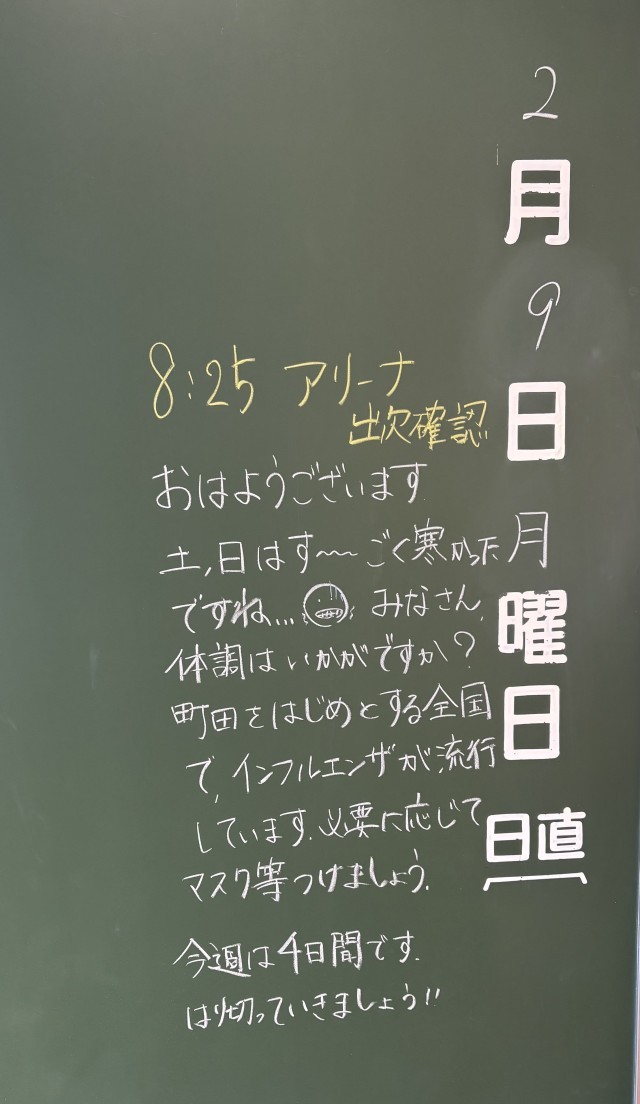 2月9日月曜日
日直
8:25 アリーナ
出欠確認
おはようございます.
土,日はす〜〜ごく寒かった
ですね... みなさん,
体調はいかがですか?
町田をはじめとする全国
で,インフルエンザが流行
しています.必要に応じて
マスク等つけましょう.
今週は4日間です.
はり切っていきましょう!!